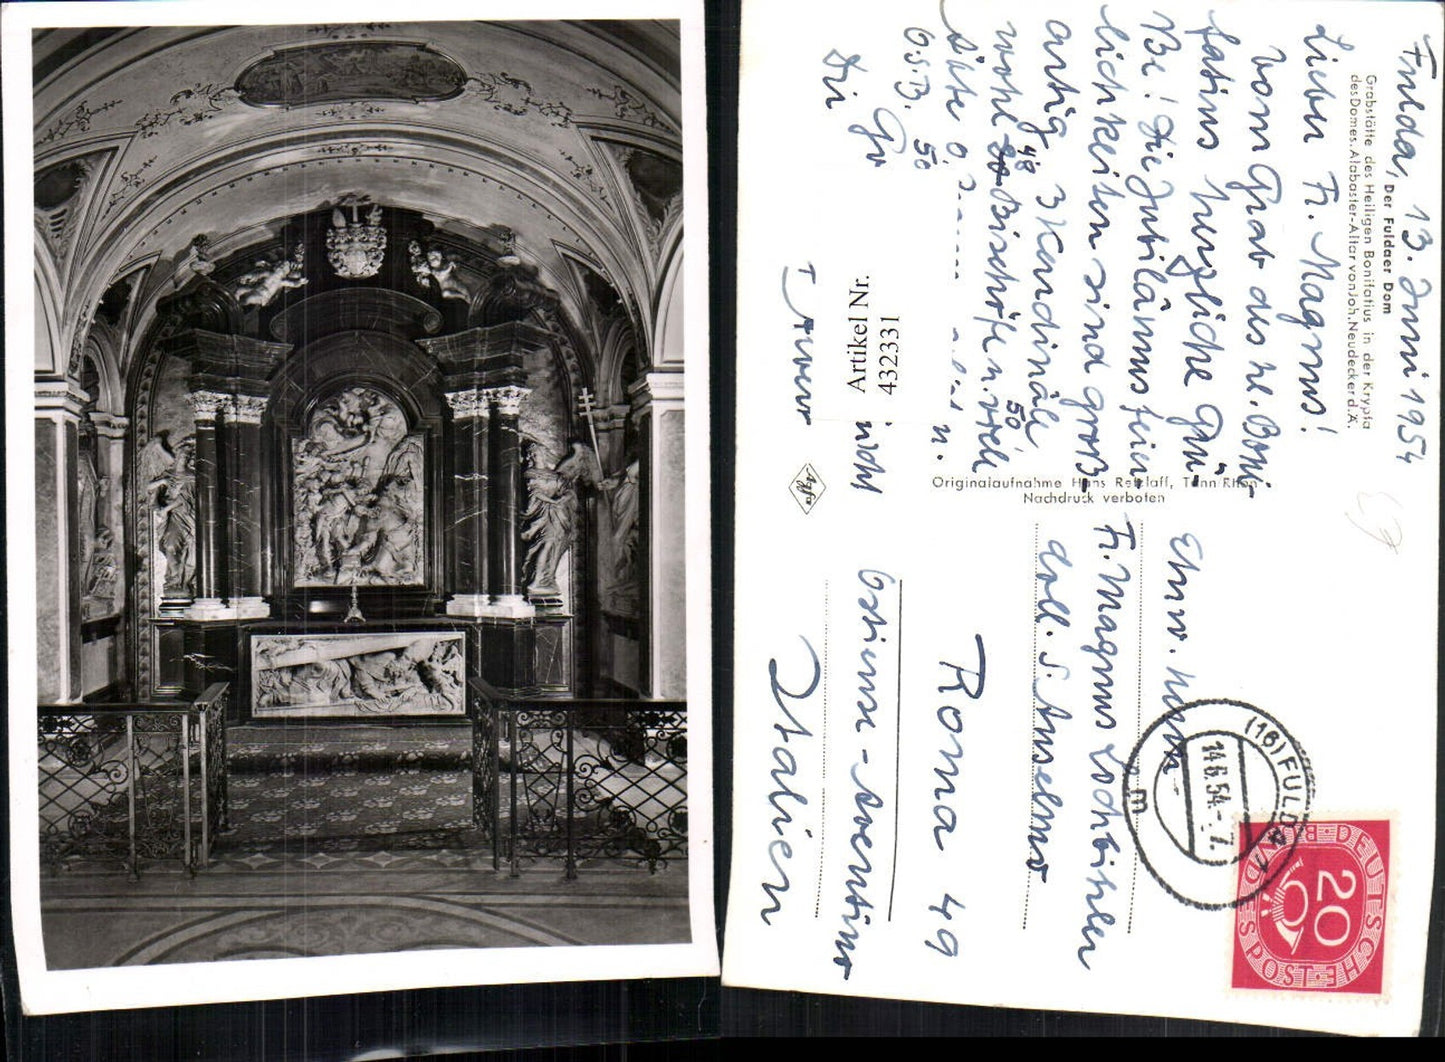 Der Fuldaer Dom
Grabstätte des Heiligen Bonifatius in der Krypta
des Domes. Alabaster-Altar von Joh. Neudecker d. Ä.
Fulda, 13. Juni 1954
Lieber Fr. Magnus!
Vom Grab des hl. Boni-
fatius herzliche Grü-
ße! Die Jubiläumsfeier-
lichkeiten sind groß-
artig. 3 Kardinäle
50
wohl 48 Bischöfe u. viele
Äbte O.
u.
O.S.B. 50
Artikel Nr.
432331
Agfa
Originalaufnahme Hans Retzlaff, Tann/Rhön
Nachdruck verboten
Ehrw. Herrn
Fr. Magnus Lochbihler
Coll. S. Anselmo
Roma 49
Ostiense - Aventino
Italien
(16) FULDA 1
14.6.54.-7
m
DEUTSCHE BUNDESPOST
20